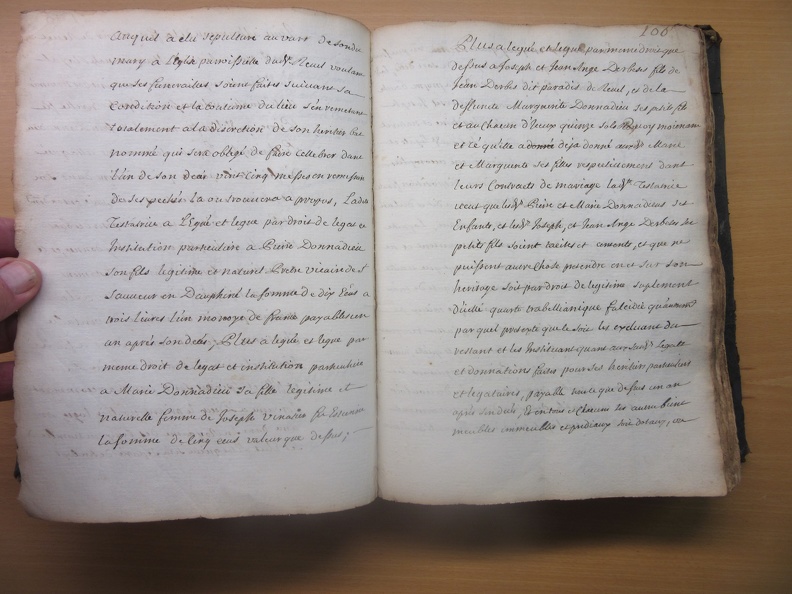 auquel a elu sepulture au vart de sondit
mary a l'eglise parroissielle dud.t Reuil voulant
que ses funerailles soient faites suivant sa
condition et la coutume du lieu s'en remetant
totalement a la discretion de son heritier bas
nommé qui sera obligé de faire cellebrer dans
l'an de son deces vint cinq messes en remission
de ses pechés la ou trouvera a propos, Lad.
Testatrice a legué et legue par droit de legat et
Institution particuliere a Pierre Donnadieu
son fils legitime et naturel Pretre vicaire de S.t
Sauveur en Dauphiné la somme de dix Ecus a
trois livres l'un monoye de france payables un
an apres son deces, Plus a legué et legue par
meme droit de legat et institution particuliere
a Marie Donnadieu sa fille legitime et
naturelle femme de Joseph vinatier Estienne
la somme de cinq ecus valeur que dessus;
100
Plus a legué et legue par meme droit que
dessus a Joseph et Jean Ange Derbeses fils de
Jean Derbes dit paradis de Reuil, et de la
deffuncte Marguerite Donnadieu ses petits fils
et au chacun d'Yeux quinze sols moienant
et ce qu'elle a donné deja donné aux d.tes Marie
et Marguerite ses filles respectivement dans
leurs Contracts de mariage lad.te Testatrice
veut que lesd.ts Pierre et Marie Donnadieus ses
Enfants, et lesd.ts Joseph, et Jean Ange Derbeses ses
petits fils soient taisites et contents, et que ne
puissent autre chose pretendre en et sur son
heritage soit par droit de legitime suplement
d'icelle quarte trabellianique falcidie qu'autrement
par quel pretexte que ce soit les excluant du
restant et les Instituant quant aux susd.ts legats
et donnations faites pour ses heritiers particuliers
et legataires, payable tout ce que dessus un an
apres son deces, Et en tous et chacuns les autres biens
meubles immeubles et